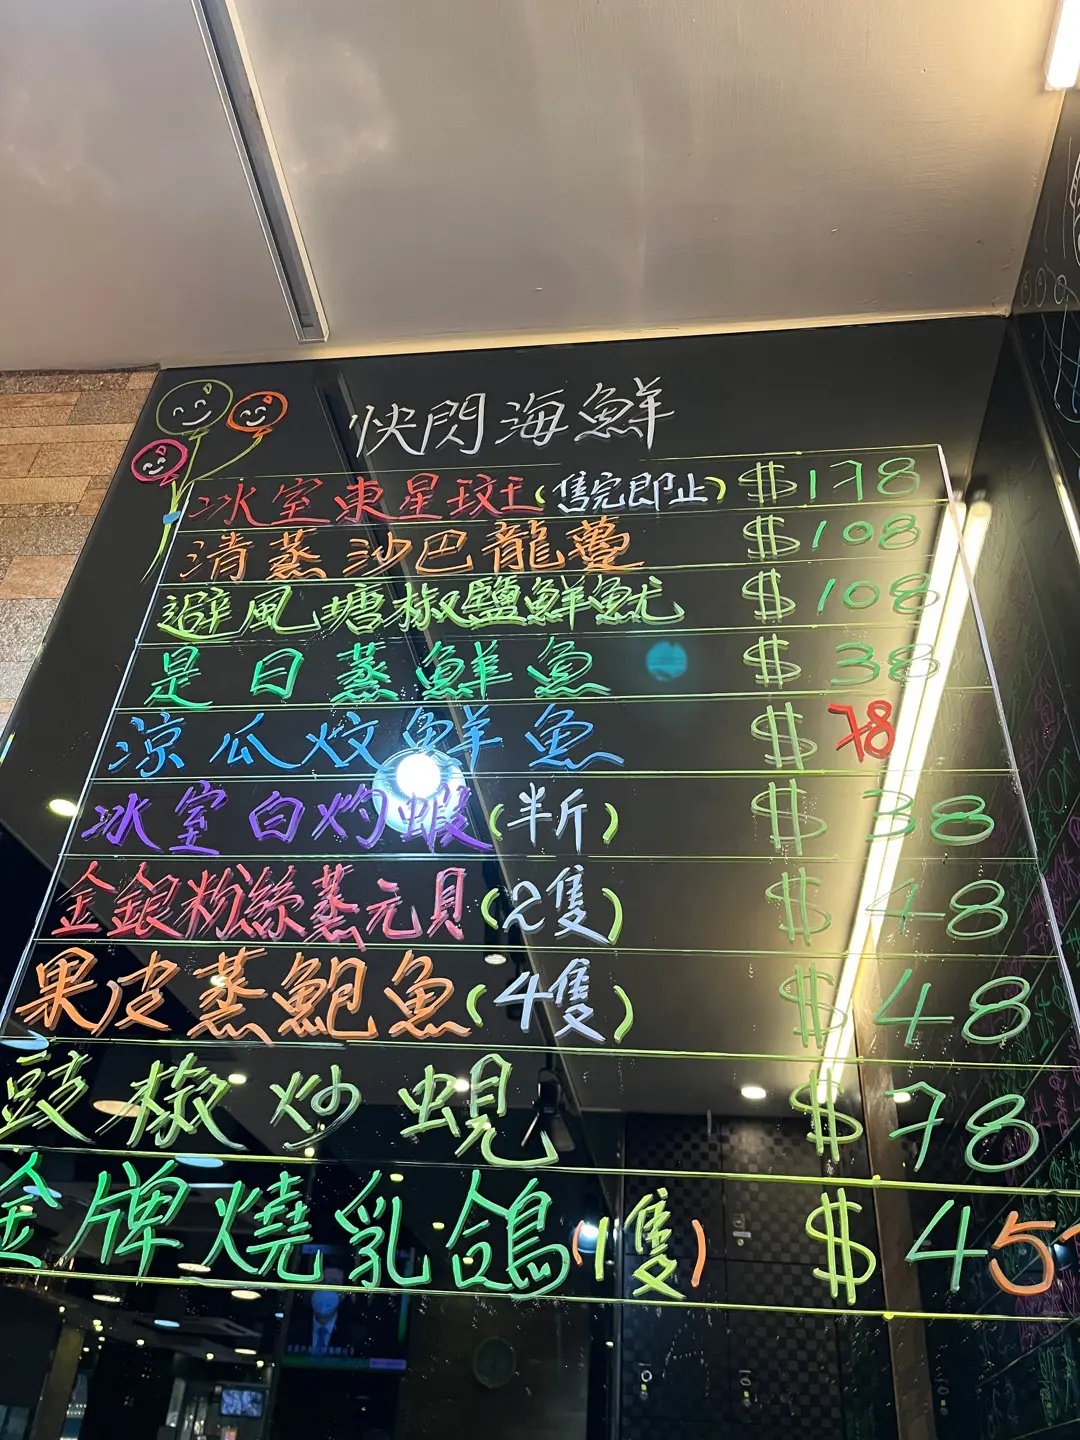 快閃海鮮
冰室東星斑(售完即止) $178
清蒸沙巴龍躉 $108
避風塘椒鹽鮮魷 $108
是日蒸鮮魚 $38
涼瓜炆鮮魚 $78
冰室白灼蝦(半斤) $38
金銀粉絲蒸元貝(2隻) $48
果皮蒸鮑魚(4隻) $48
豉椒炒蜆 $78
金牌燒乳鴿(1隻) $45